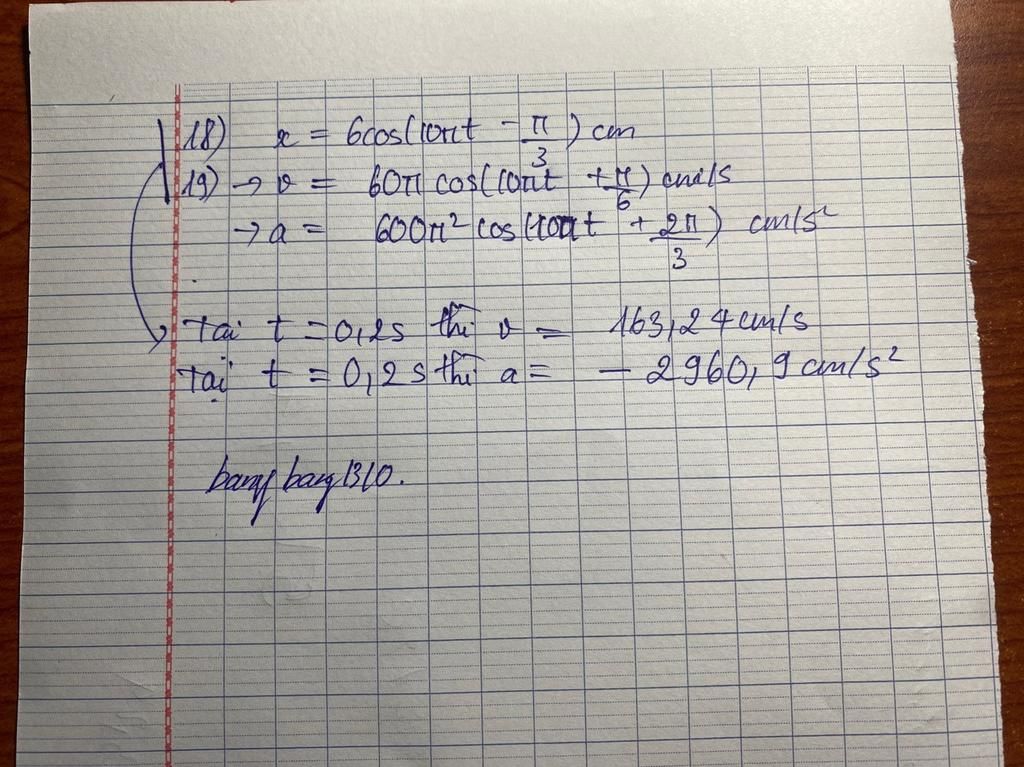 18) x = 6cos(10πt - π/3) cm
19) → v = 60π cos(10πt + π/6) cm/s
→ a = 600π² cos(10πt + 2π/3) cm/s²
Tại t = 0,2s thì v = 163,24 cm/s
Tại t = 0,2s thì a = - 2960,9 cm/s²
bangbang1310.